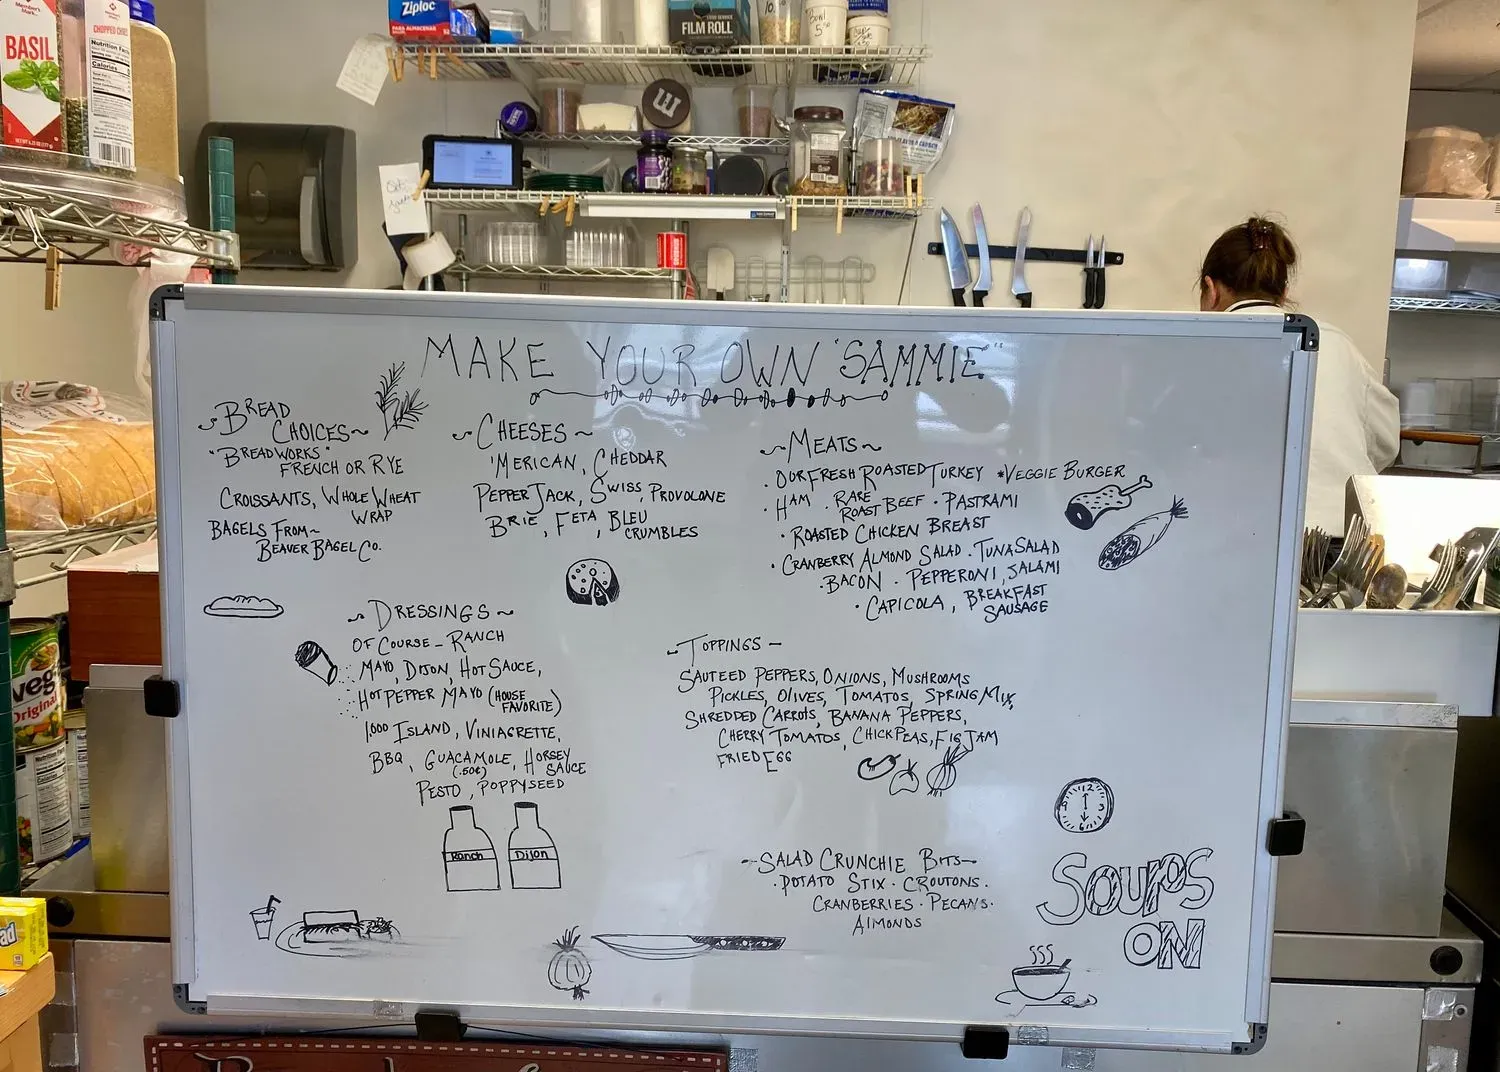 Ziploc
PARA ALMACENAR
FILM ROLL
Member's Mark
BASIL
CHOPPED CHIVES
Nutrition Facts
Calories
Bowl
MAKE YOUR OWN "SAMMIE"
~BREAD CHOICES~
"BREADWORKS"
FRENCH OR RYE
CROISSANTS, WHOLE WHEAT
WRAP
BAGELS FROM~
BEAVER BAGEL CO.
~CHEESES~
'MERICAN, CHEDDAR
PEPPER JACK, SWISS, PROVOLONE
BRIE, FETA, BLEU
CRUMBLES
~MEATS~
· OUR FRESH ROASTED TURKEY *VEGGIE BURGER
· HAM · RARE ROAST BEEF · PASTRAMI
· ROASTED CHICKEN BREAST
· CRANBERRY ALMOND SALAD · TUNA SALAD
· BACON · PEPPERONI, SALAMI
· CAPICOLA, BREAKFAST
SAUSAGE
~DRESSINGS~
OF COURSE - RANCH
MAYO, DIJON, HOT SAUCE,
HOT PEPPER MAYO (HOUSE FAVORITE)
1,000 ISLAND, VINIAGRETTE,
BBQ, GUACAMOLE, HORSEY
(.50¢) SAUCE
PESTO, POPPYSEED
Ranch
Dijon
~TOPPINGS-
SAUTEED PEPPERS, ONIONS, MUSHROOMS
PICKLES, OLIVES, TOMATOS, SPRING MIX,
SHREDDED CARROTS, BANANA PEPPERS,
CHERRY TOMATOS, CHICKPEAS, FIG JAM
FRIED EGG
~SALAD CRUNCHIE BITS~
· POTATO STIX · CROUTONS ·
CRANBERRIES · PECANS ·
ALMONDS
12
3
6
9
SOUPS
ON
Veg
Original
Nutrition Facts